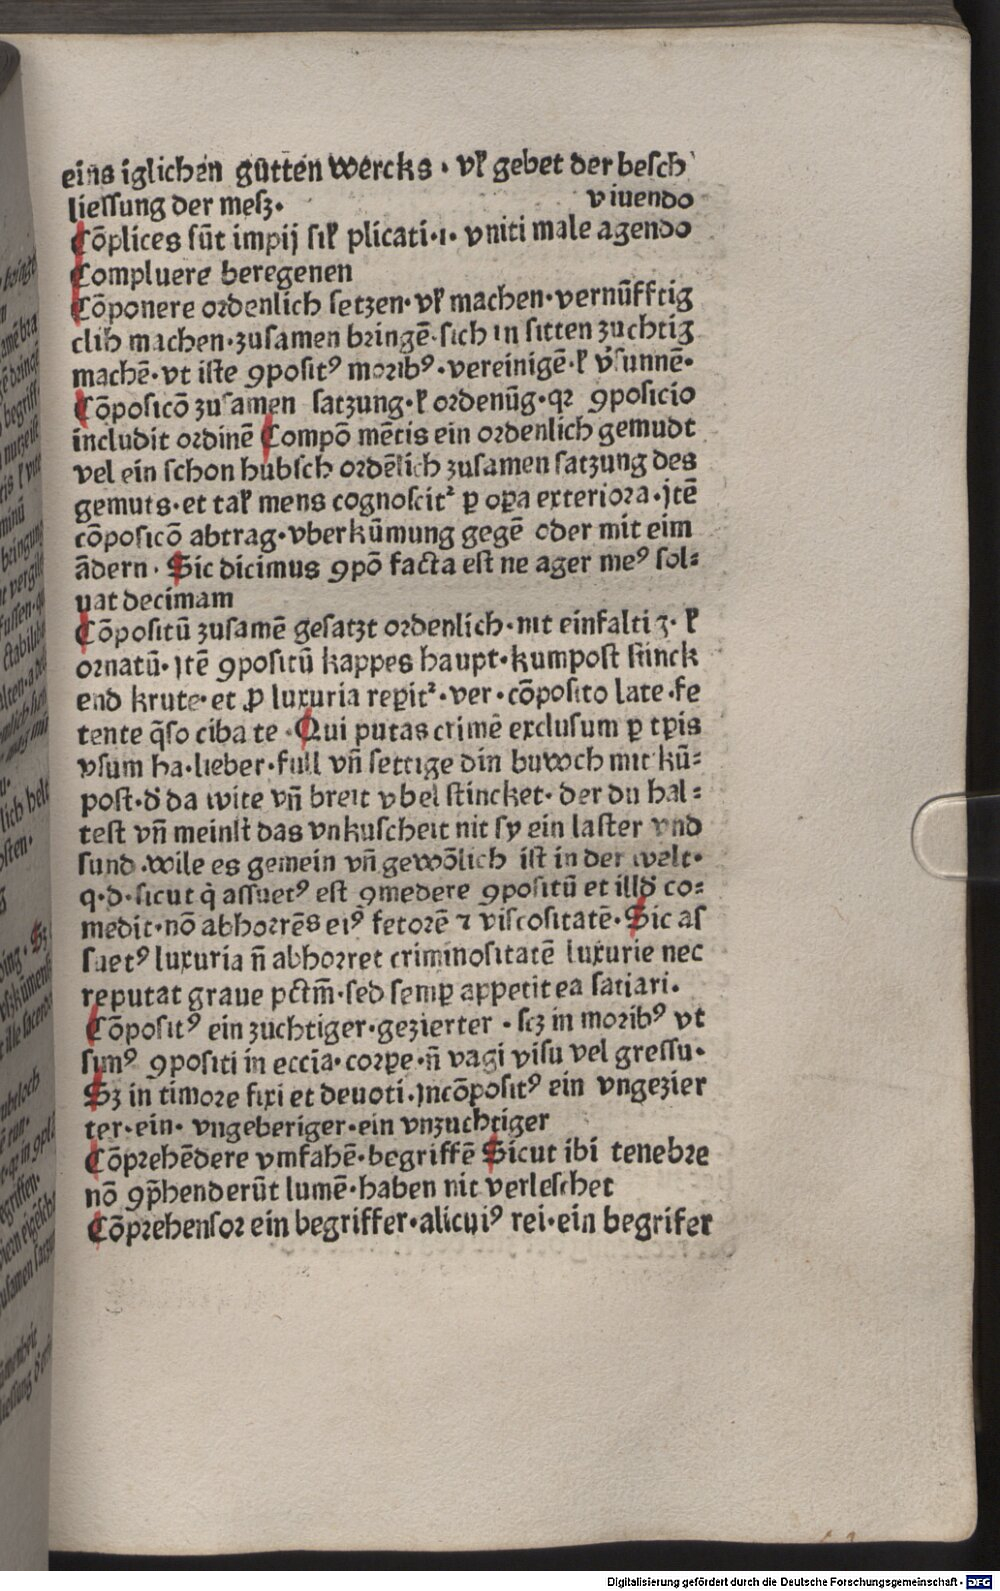 eins iglichen gůtten wercks · vꝉ gebet der besch
liessung der mesz·                    viuendo
Cōplices sūt impij siꝉ plicati·i· vniti male agendo
Compluere beregenen
Cōponere ordenlich setzen· vꝉ machen·vernūfftig
clih machen·zusamen bringē·sich in sitten zuchtig
machē·vt iste ꝯposit⁹ morib⁹·vereinigē·ꝉ v̓sunnē·
Cōposicō zusamen satzung·ꝉ ordenūg·qꝛ ꝯposicio
includit ordinē Compō mētis ein ordenlich gemudt
vel ein schon hubsch ordēlich zusamen satzung des
gemuts·et taꝉ mens cognoscitᷣ ꝑ oꝑa exteriora·jtē
cōposicō abtrag·vberkūmung gegē oder mit eim
ādern· Sic dicimus ꝯpō facta est ne ager me⁹ sol⸗
uat decimam
Cōpositū zusamē gesatzt ordenlich·nit einfaltig· ꝉ
ornatū·jtē ꝯpositū kappes haupt·kumpost stinck
end krute·et ꝓ luxuria reꝑitᷣ·ver·cōposito late·fe
tente q̄so ciba te·Qui putas crimē exclusum ꝑ tꝑis
vsum ha·lieber·full vn̄ settige din buwch mit kū⸗
post·d̄ da wite vn̄ breit vbel stincket· der du hal⸗
test vn̄ meinst das vnkuscheit nit sy ein laster vnd
sund·wile es gemein vn̄ gewōlich ist in der welt·
q·d·sicut q̇ assuet⁹ est ꝯmedere ꝯpositū et illd̄ co⸗
medit·nō abhorrēs ei⁹ fetorē ⁊ viscositatē·Sic as
suet⁹ luxuria n̄ abhorret criminositatē luxurie nec
reputat graue pctm̄·sed semꝑ appetit ea satiari·
Cōposit⁹ ein zuchtiger·gezierter · scz in morib⁹ vt
sim⁹ ꝯpositi in eccīa·corꝑe·n̄ vagi visu vel gressu·
Sz in timore fixi et deuoti·Jncōposit⁹ ein vngezier
ter·ein· vngeberiger·ein vnzuchtiger
Cōprehēdere vmfahē·begriffē Sicut ibi tenebre
nō ꝯp̄henderūt lumē·haben nit verleschet
Cōprehensor ein begriffer·alicui⁹ rei·ein begrifer
Digitalisierung gefördert durch die Deutsche Forschungsgemeinschaft · DFG